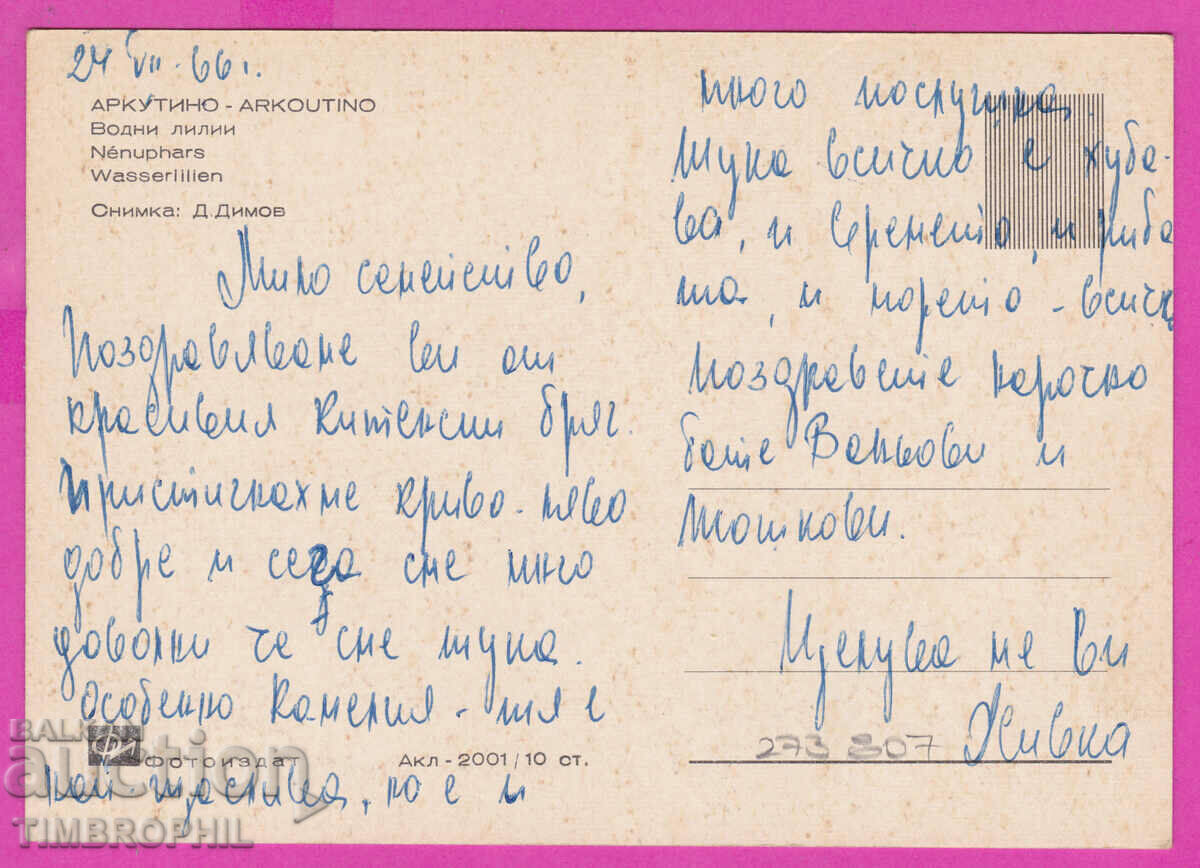 24 VII. 66 г.
АРКУТИНО - ARKOUTINO
Водни лилии
Nénuphars
Wasserlilien
Снимка: Д. Димов
Мило семейство,
Поздравяваме ви от
красивия Китенски бряг.
Пристигнахме криво-ляво
добре и сега сме много
доволни че сме тука.
Особенно Камелия - тя е
най щастлива, но е и
много послушна.
Тука всичко е хуба-
ва, и времето, и риба
та, и морето - всичк
Поздравете нарочно
бате Ваньови и
Тошкови.
Целуваме ви
Живка
273 807
Фотоиздат
Акл - 2001 / 10 ст.
BALKAN
auction
TIMBROPHIL